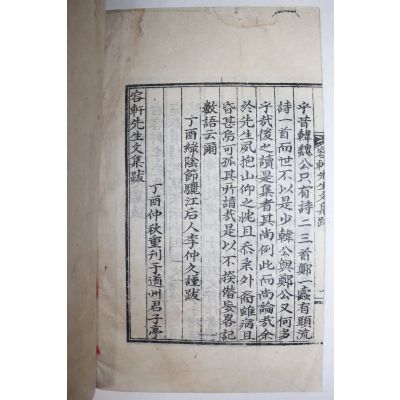 容軒先生文集跋
乎昔韓魏公只有詩二三首鄭一蠹有頭流
詩一首而世不以是少韓公與鄭公又何多
乎哉後之讀是集者其尚例此而尚論哉余
於先生夙抱山仰之忱且忝系外裔雖病且
昏甚席可孤其所請哉是以不揆僭妄畧記
數語云爾
丁酉綠陰節驪江后人李仲久謹跋
丁酉仲秋重刊于道州君子亭
容軒先生文集跋